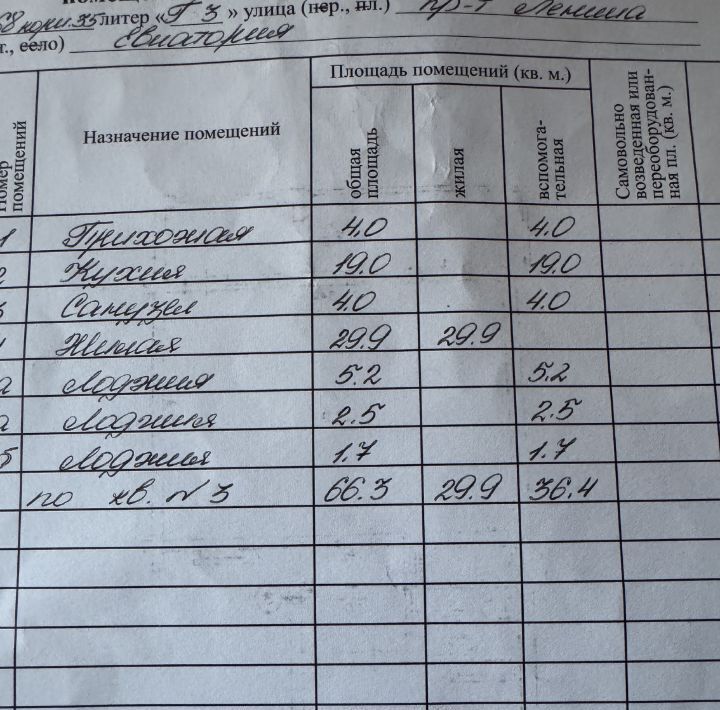 68 корп.35 литер «Г 3» улица (пер., пл.) пр-т Ленина
т., село) Евпатория
Номер помещений
Назначение помещений
Площадь помещений (кв. м.)
общая площадь
жилая
вспомога-
тельная
Самовольно
возведенная или
переоборудован-
ная пл. (кв. м.)
1 Прихожая 4.0 4.0
2 Кухня 19.0 19.0
3 Санузел 4.0 4.0
4 Жилая 29.9 29.9
а Лоджия 5.2 5.2
а Лоджия 2.5 2.5
б Лоджия 1.7 1.7
по кв. N 3 66.3 29.9 36.4